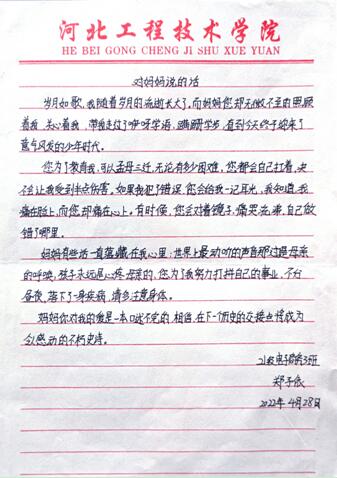 河北工程技术学院
HE BEI GONG CHENG JI SHU XUE YUAN
对妈妈说的话
岁月如歌,我随着岁月的流逝长大了。而妈妈您却无微不至的照顾
着我,关心着我,带我走过了咿呀学语,蹒跚学步,直到今天终于迎来了
意气风发的少年时代。
您为了教育我,可以孟母三迁,无论有多少困难,您都会自己扛着,决
不会让我受到半点伤害。如果我犯了错误,您会给我一记耳光,我知道,我
痛在脸上,而您却痛在心上。有时候,您会对着镜子,痛哭流涕,自己做
错了哪里。
妈妈有些话一直藏在我心里:世界上最动听的声音那边是母亲
的呼唤,孩子永远是心疼母亲的,您为了我努力打拼自己的事业,不分
昼夜,落下了一身疾病,请多注意身体。
妈妈你对我的爱是一本说不完的,相信,在下一个历史的交接点将成为
令人感动的不朽史诗。
21级电子商务3班
郑子依
2022年4月28日